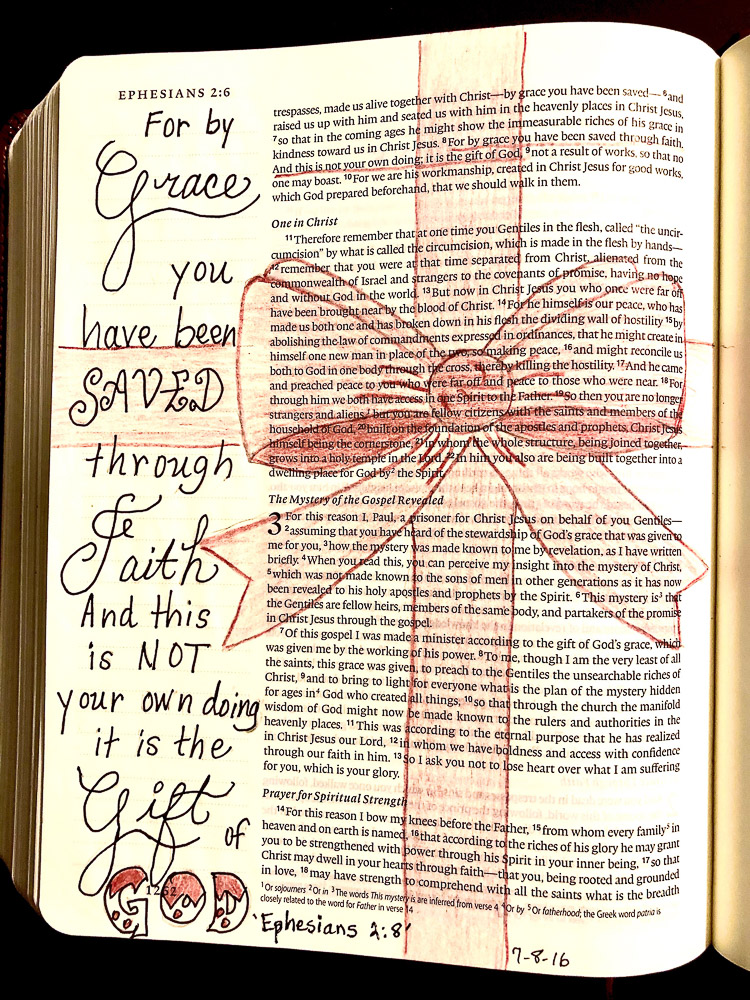 EPHESIANS 2:6
For by
Grace
you
have been
SAVED
through
Faith
And this
is NOT
your own doing
it is the
Gift
of
GOD
1262
'Ephesians 2:8'
7-8-16
trespasses, made us alive together with Christ—by grace you have been saved— 6and
raised us up with him and seated us with him in the heavenly places in Christ Jesus,
7so that in the coming ages he might show the immeasurable riches of his grace in
kindness toward us in Christ Jesus. 8For by grace you have been saved through faith.
And this is not your own doing; it is the gift of God, 9not a result of works, so that no
one may boast. 10For we are his workmanship, created in Christ Jesus for good works,
which God prepared beforehand, that we should walk in them.
One in Christ
11Therefore remember that at one time you Gentiles in the flesh, called “the uncir-
cumcision” by what is called the circumcision, which is made in the flesh by hands—
12remember that you were at that time separated from Christ, alienated from the
commonwealth of Israel and strangers to the covenants of promise, having no hope
and without God in the world. 13But now in Christ Jesus you who once were far off
have been brought near by the blood of Christ. 14For he himself is our peace, who has
made us both one and has broken down in his flesh the dividing wall of hostility 15by
abolishing the law of commandments expressed in ordinances, that he might create in
himself one new man in place of the two, so making peace, 16and might reconcile us
both to God in one body through the cross, thereby killing the hostility. 17And he came
and preached peace to you who were far off and peace to those who were near. 18For
through him we both have access in one Spirit to the Father. 19So then you are no longer
strangers and aliens,1 but you are fellow citizens with the saints and members of the
household of God, 20built on the foundation of the apostles and prophets, Christ Jesus
himself being the cornerstone, 21in whom the whole structure, being joined together,
grows into a holy temple in the Lord. 22In him you also are being built together into a
dwelling place for God by2 the Spirit.
The Mystery of the Gospel Revealed
3 For this reason I, Paul, a prisoner for Christ Jesus on behalf of you Gentiles—
2assuming that you have heard of the stewardship of God’s grace that was given to
me for you, 3how the mystery was made known to me by revelation, as I have written
briefly. 4When you read this, you can perceive my insight into the mystery of Christ,
5which was not made known to the sons of men in other generations as it has now
been revealed to his holy apostles and prophets by the Spirit. 6This mystery is3 that
the Gentiles are fellow heirs, members of the same body, and partakers of the promise
in Christ Jesus through the gospel.
7Of this gospel I was made a minister according to the gift of God’s grace, which
was given me by the working of his power. 8To me, though I am the very least of all
the saints, this grace was given, to preach to the Gentiles the unsearchable riches of
Christ, 9and to bring to light for everyone what is the plan of the mystery hidden
for ages in4 God who created all things, 10so that through the church the manifold
wisdom of God might now be made known to the rulers and authorities in the
heavenly places. 11This was according to the eternal purpose that he has realized
in Christ Jesus our Lord, 12in whom we have boldness and access with confidence
through our faith in him. 13So I ask you not to lose heart over what I am suffering
for you, which is your glory.
Prayer for Spiritual Strength
14For this reason I bow my knees before the Father, 15from whom every family5 in
heaven and on earth is named, 16that according to the riches of his glory he may grant
you to be strengthened with power through his Spirit in your inner being, 17so that
Christ may dwell in your hearts through faith—that you, being rooted and grounded
in love, 18may have strength to comprehend with all the saints what is the breadth
1 Or sojourners 2 Or in 3 The words This mystery is are inferred from verse 4 4 Or by 5 Or fatherhood; the Greek word patria is
closely related to the word for Father in verse 14